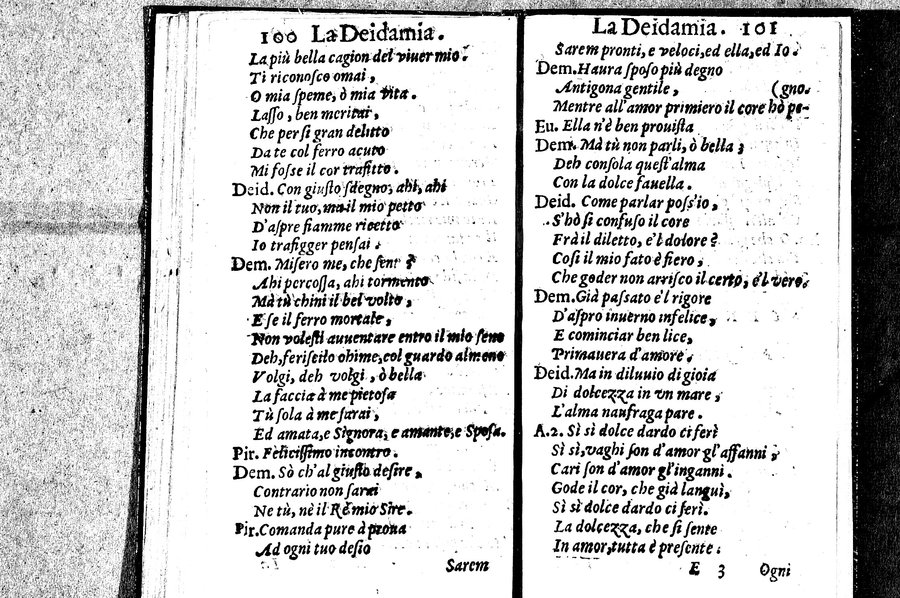 100 La Deidamia.
La più bella cagion del viuer mio.
Ti riconosco omai,
O mia speme, ò mia vita.
Lasso, ben meritai,
Che per sì gran delitto
Da te col ferro acuto
Mi fosse il cor trafitto.
Deid. Con giusto sdegno, ahi, ahi
Non il tuo, ma il mio petto
D'aspre fiamme ricetto
Io trafigger pensai.
Dem. Misero me, che sent ?
Ahi percossa, ahi tormento
Mà tù chini il bel volto,
E se il ferro mortale,
Non volesti auuentare entro il mio seno
Deh, feriscilo ohime, col guardo almeno
Volgi, deh volgi, ò bella
La faccia à me pietosa
Tù sola à me sarai,
Ed amata, e Signora, e amante, e Sposa.
Pir. Felicissimo incontro.
Dem. Sò ch'al giusto desire,
Contrario non sarai
Ne tù, nè il Rè mio Sire.
Pir. Comanda pure à proua
Ad ogni tuo desio
Sarem
La Deidamia. 101
Sarem pronti, e veloci, ed ella, ed Io.
Dem. Haura sposo più degno
Antigona gentile, (gno.
Mentre all'amor primiero il core hò pe-
Eu. Ella n'è ben prouista
Dem. Mà tù non parli, ò bella;
Deh consola quest'alma
Con la dolce fauella.
Deid. Come parlar poss'io,
S'hò sì confuso il core
Frà il diletto, e'l dolore?
Così il mio fato è fiero,
Che goder non arrisco il certo, e'l vero.
Dem. Già passato è'l rigore
D'aspro inuerno infelice,
E cominciar ben lice,
Primauera d'amore.
Deid. Ma in diluuio di gioia
Di dolcezza in vn mare,
L'alma naufraga pare.
A.2. Sì sì dolce dardo ci ferì
Sì sì, vaghi son d'amor gl'affanni;
Cari son d'amor gl'inganni.
Gode il cor, che già languì,
Sì sì dolce dardo ci ferì.
La dolcezza, che si sente
In amor, tutta è presente.
E 3 Ogni